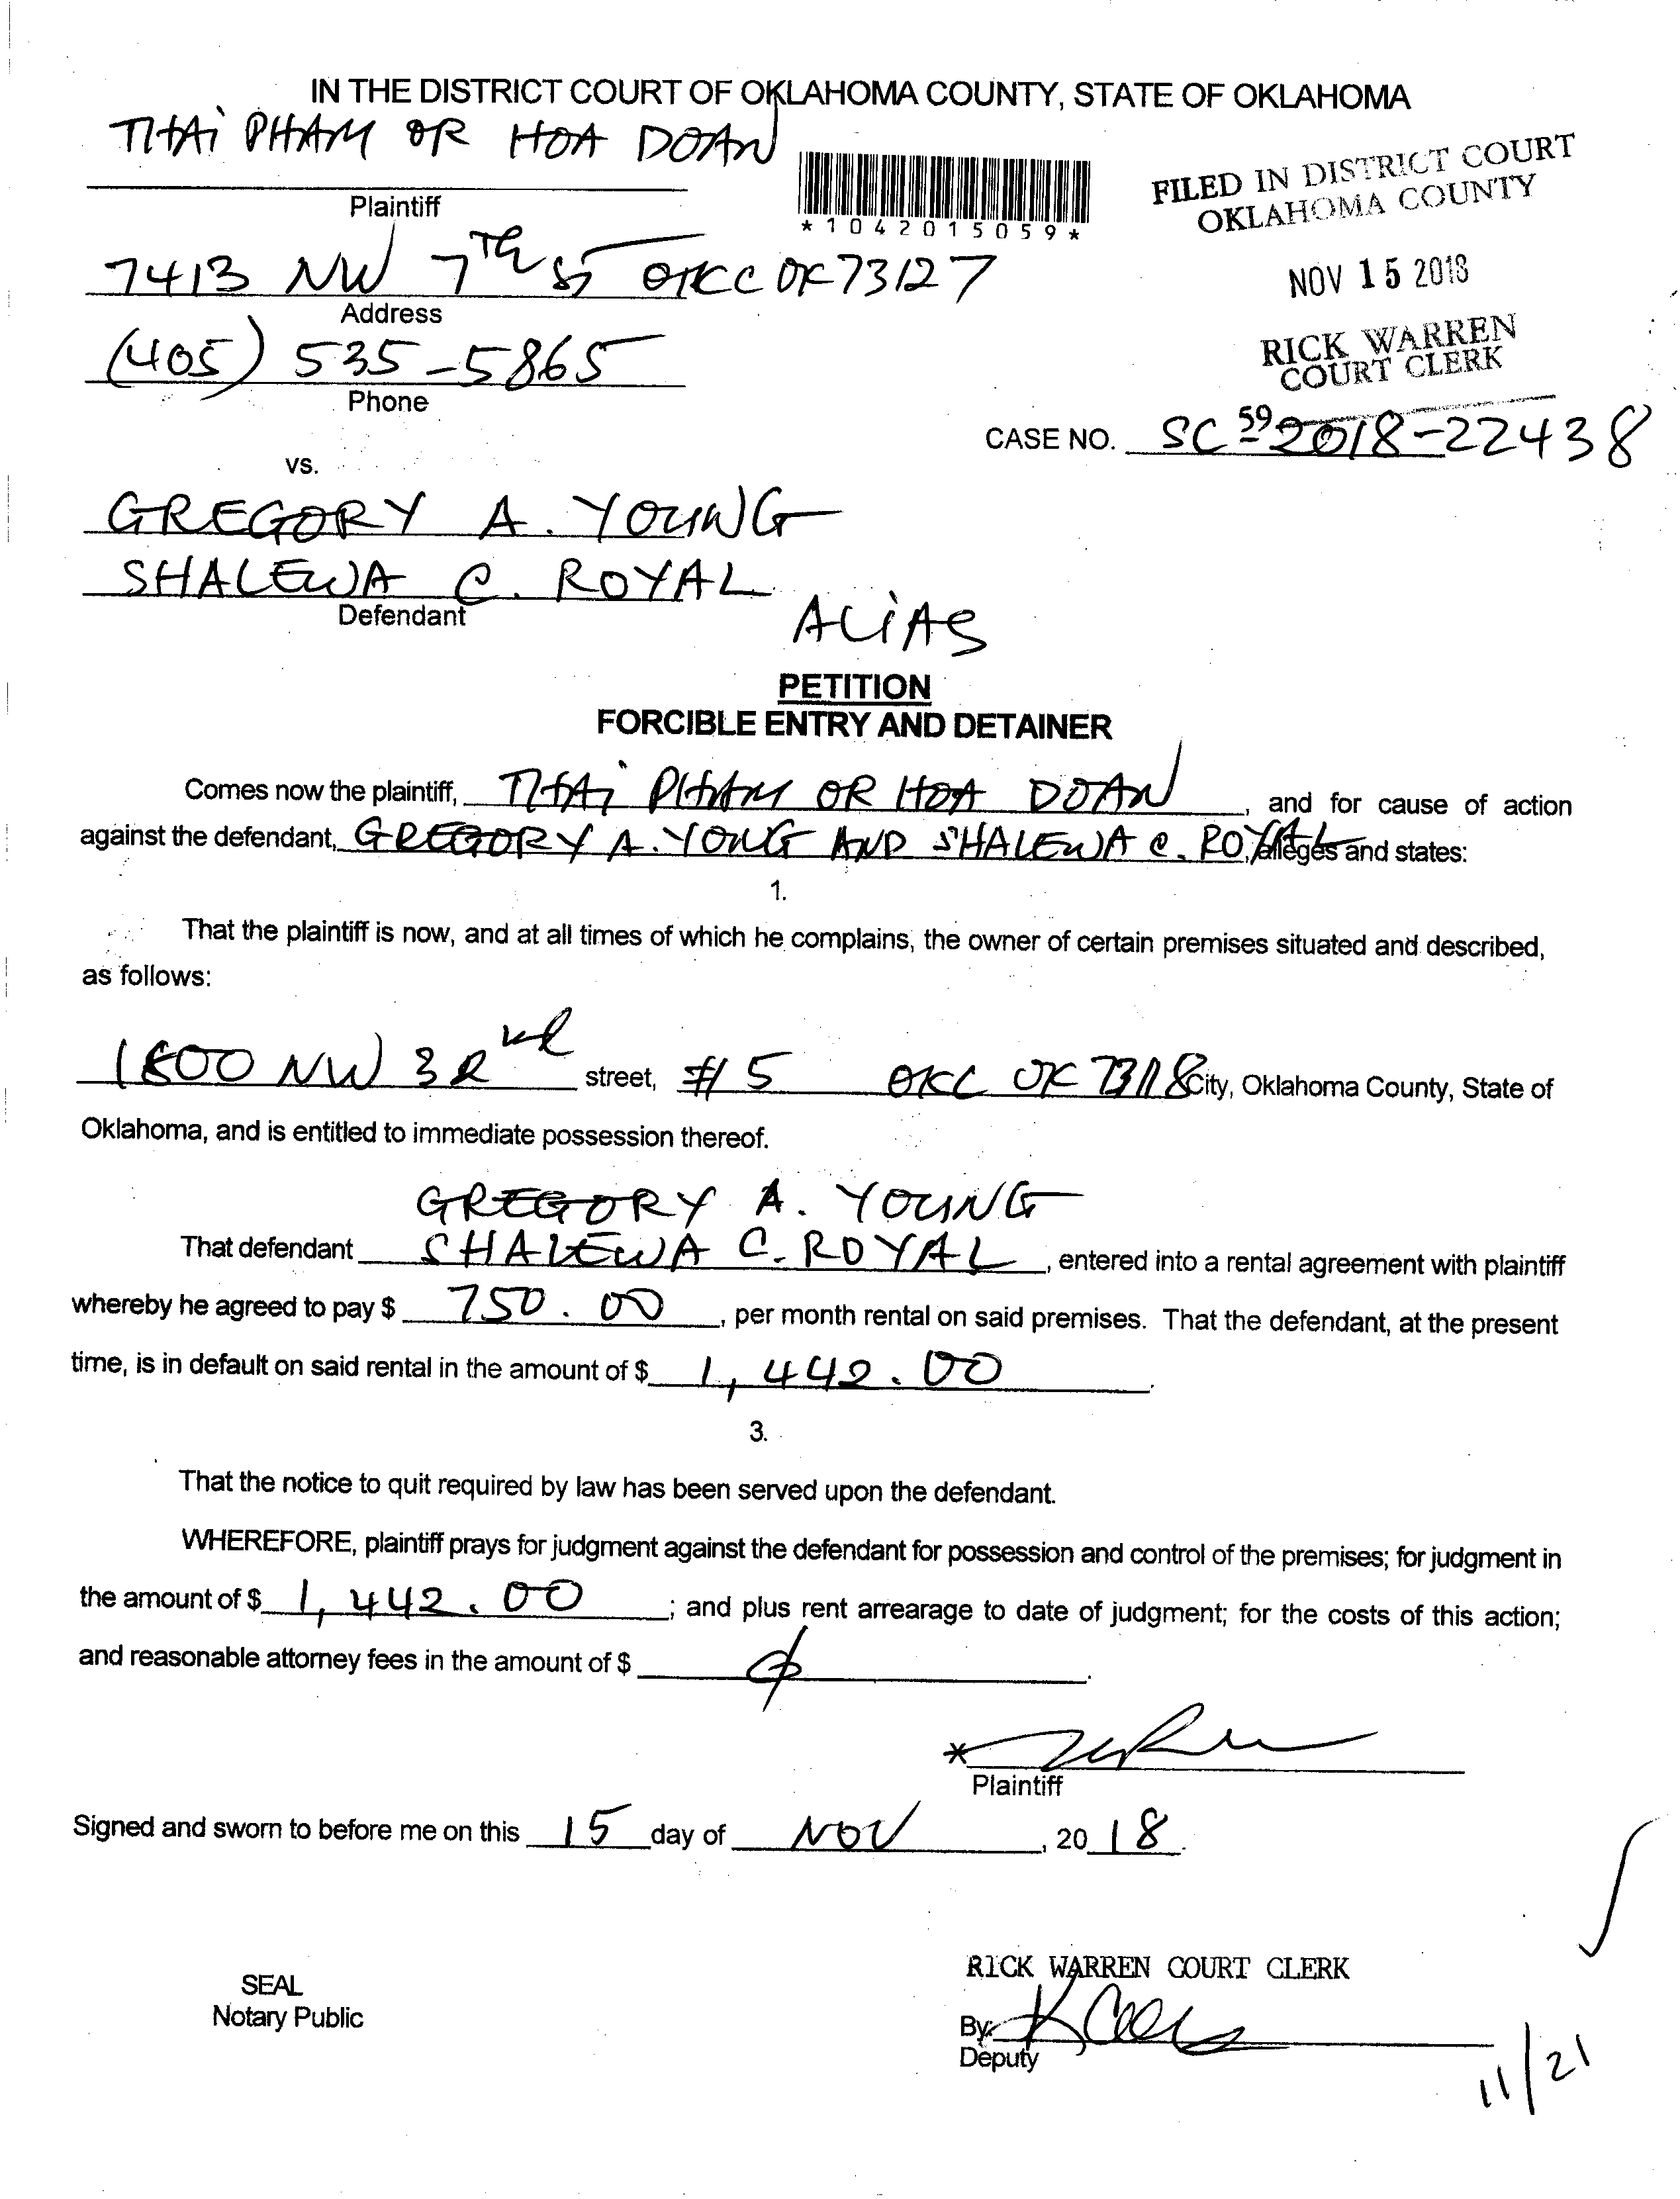 IN THE DISTRICT COURT OF OKLAHOMA COUNTY, STATE OF OKLAHOMA
THAi PHAM OR HOA DOAN
Plaintiff
*1042015059*
FILED IN DISTRICT COURT
OKLAHOMA COUNTY
NOV 15 2018
RICK WARREN
COURT CLERK
7413 NW 7Th St OKCC OK 73127
Address
(405) 535-5865
Phone
CASE NO. SC 59 2018-22438
vs.
GREGORY A. YOUNG
SHALEWA C. ROYAL
Defendant
ALiAS
PETITION
FORCIBLE ENTRY AND DETAINER
Comes now the plaintiff, THAi PHAM OR HOA DOAN, and for cause of action
against the defendant, GREGORY A. YOUNG AND SHALEWA C. ROYAL, alleges and states:
1.
That the plaintiff is now, and at all times of which he complains, the owner of certain premises situated and described,
as follows:
NW 3R street, #5 OKC OK City, Oklahoma County, State of
Oklahoma, and is entitled to immediate possession thereof.
GREGORY A. YOUNG
That defendant SHALEWA C. ROYAL, entered into a rental agreement with plaintiff
whereby he agreed to pay $ 750.00, per month rental on said premises. That the defendant, at the present
time, is in default on said rental in the amount of $ 1,442.00.
3.
That the notice to quit required by law has been served upon the defendant.
WHEREFORE, plaintiff prays for judgment against the defendant for possession and control of the premises; for judgment in
the amount of $ 1,442.00; and plus rent arrearage to date of judgment; for the costs of this action;
and reasonable attorney fees in the amount of $ ∅.
*
Plaintiff
Signed and sworn to before me on this 15 day of NOV, 2018.
SEAL
Notary Public
RICK WARREN COURT CLERK
By:
Deputy
11/21